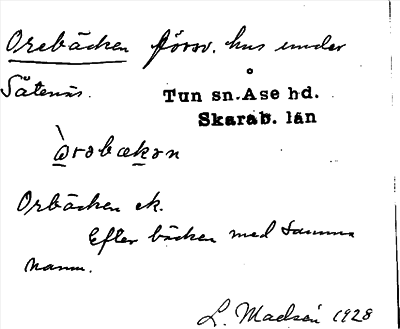 Orebäcken försv. hus under
Såtenäs.
Tun sn. Åse hd.
Skarab. län
àrəbækən
Orbäcken ek.
Efter bäcken med samma
namn.
L. Madsén 1928